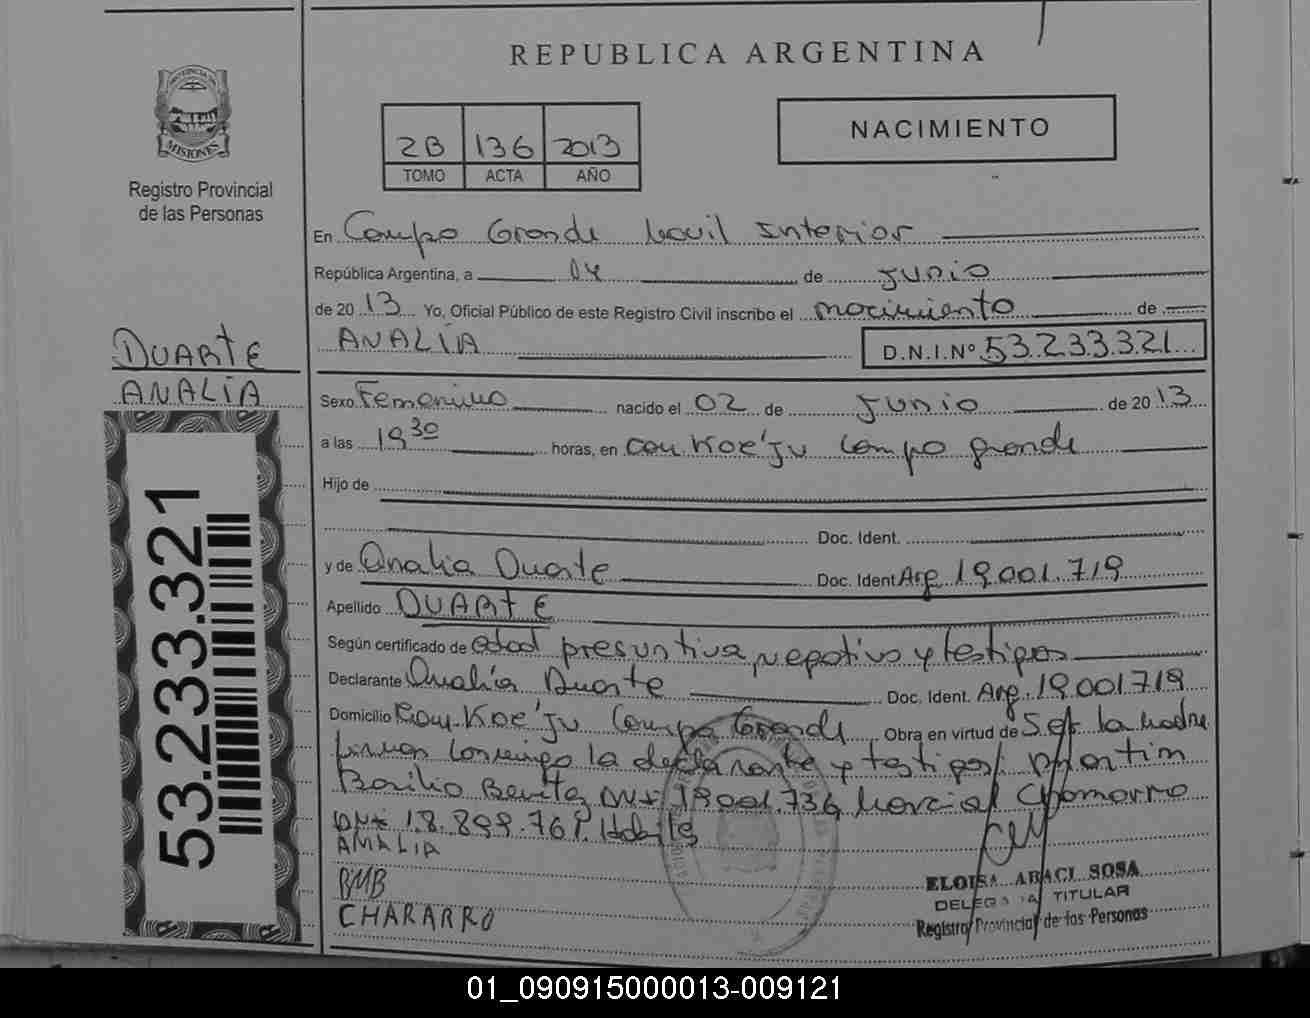 REPUBLICA ARGENTINA
PROVINCIA DE
MISIONES
Registro Provincial
de las Personas
2B 136 2013
TOMO ACTA AÑO
NACIMIENTO
En Campo Grande Movil Interior
República Argentina, a 04 de Junio
de 2013 Yo, Oficial Público de este Registro Civil inscribo el nacimiento de
ANALÍA D.N.I.Nº 53.233.321
DUARTE
ANALÍA
53.233.321
Sexo Femenino nacido el 02 de Junio de 2013
a las 19 30 horas, en Com. Koe'Ju Campo Grande
Hijo de
Doc. Ident.
y de Analia Duarte Doc. Ident Arg. 19.001.719
Apellido DUARTE
Según certificado de edad presuntiva, negativo y testigos
Declarante Analía Duarte Doc. Ident. Arg. 19.001719
Domicilio Com. Koe'Ju Campo Grande Obra en virtud de Ser la madre
Firman conmigo la declarante y testigos Martim
Basilio Benitez DNI 19.001.736, Marcial Chamorro
DNI 18.899.761. Habiles
AMALIA
BMB
CHARARRO
ELOISA ARACI SOSA
DELEGADA TITULAR
Registro Provincial de las Personas
01_090915000013-009121